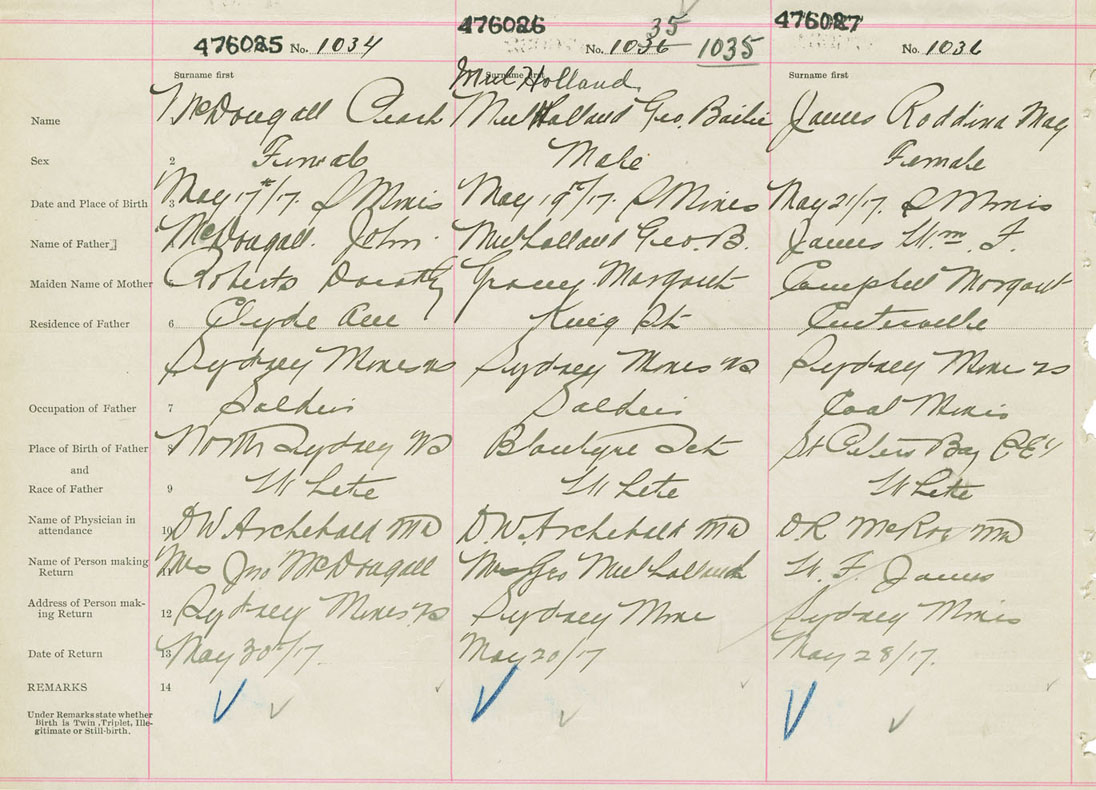 476025 No. 1034
476026 35 No. 1036 1035
476027 No. 1036
Surname first Surname first Surname first
Mul Holland
Name McDougall Pearl Mulholland Geo. Bailie James Roddina May
Sex 2 Female Male Female
Date and Place of Birth 3 May 17th/17. S Mines May 19th/17. S Mines May 21/17. S Mines
Name of Father McDougall. John. Mulholland Geo. B. James Wm. F.
Maiden Name of Mother 5 Roberts Dorothy Margaret Campbell Margaret
Residence of Father 6 Clyde Ave King St Centerville
Sydney Mines NS Sydney Mines NS Sydney Mines NS
Occupation of Father 7 Soldier Soldier Coal Miner
Place of Birth of Father 8 North Sydney NS Blantyre Sct St Peters Bay P.E.I
and
Race of Father 9 White White White
Name of Physician in
attendance 10 D W Archebald MD D. W. Archebald MD D R McRae MD
Name of Person making
Return 11 Mrs Jno McDougall Mrs Geo Mulholland W. F. James
Address of Person mak-
ing Return 12 Sydney Mines. NS Sydney Mine Sydney Mines
Date of Return 13 May 30th/17. May 20/17 May 28/17.
REMARKS 14
Under Remarks state whether
Birth is Twin, Triplet, Ille-
gitimate or Still-birth.